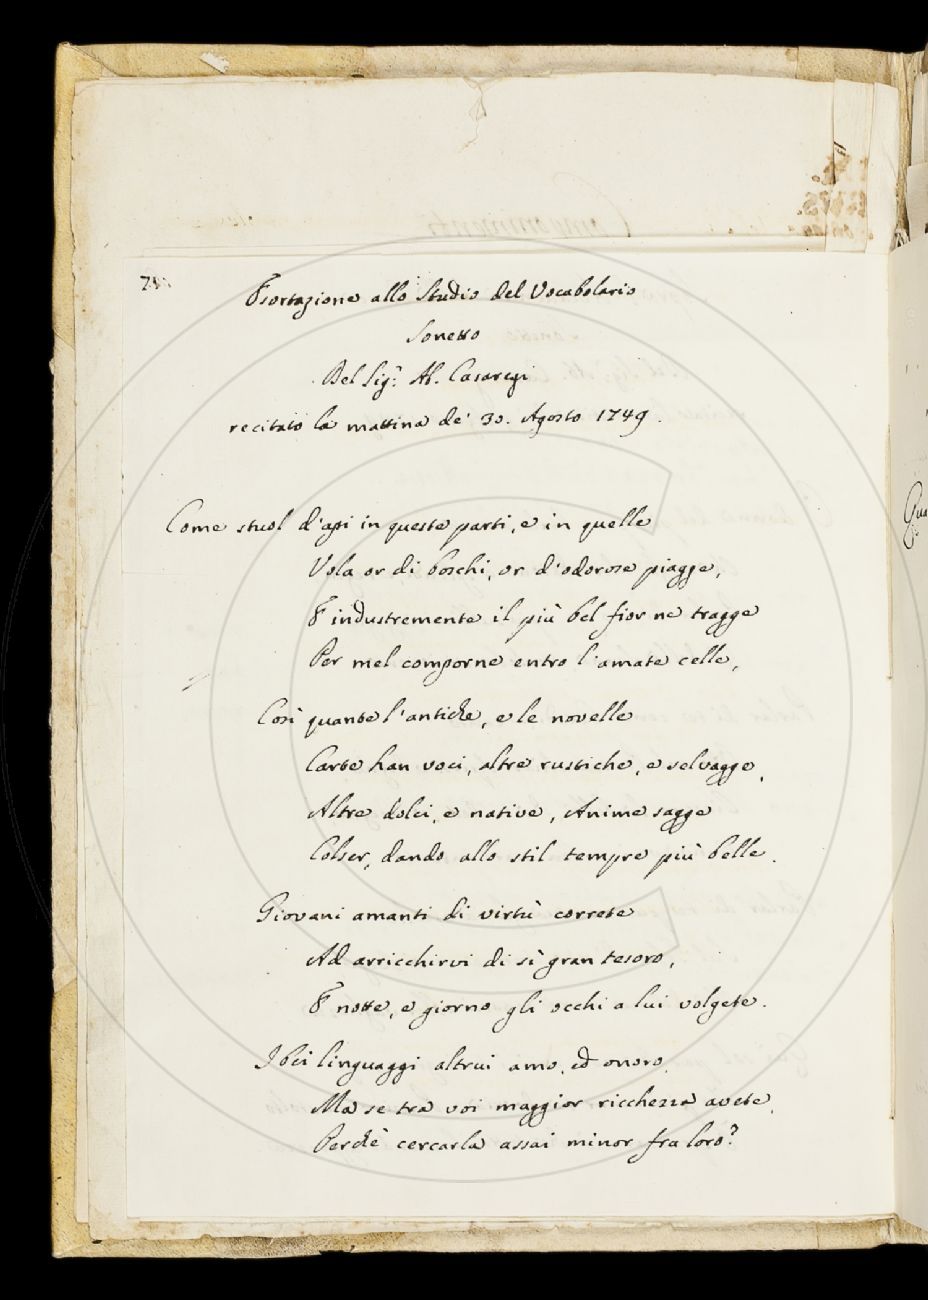 Esortazione allo Studio del Vocabolario
Sonetto
Del Sig.r Ab. Casaregi
recitato la mattina de' 30. Agosto 1749.
Come stuol d'api in queste parti, e in quelle
Vola or di boschi, or d'odorose piagge,
E industremente il più bel fior ne tragge
Per mel comporne entro l'amate celle,
Così quante l'antiche, e le novelle
Carte han voci, altre rustiche, e selvagge,
Altre dolci, e native, Anime sagge
Colser, dando allo stil tempre più belle.
Giovani amanti di virtù correte
Ad arricchirvi di sì gran tesoro,
E notte, e giorno gli occhi a lui volgete.
I bei linguaggi altrui amo, ed onoro,
Ma se tra voi maggior ricchezza avete,
Perchè cercarla assai minor fra loro?